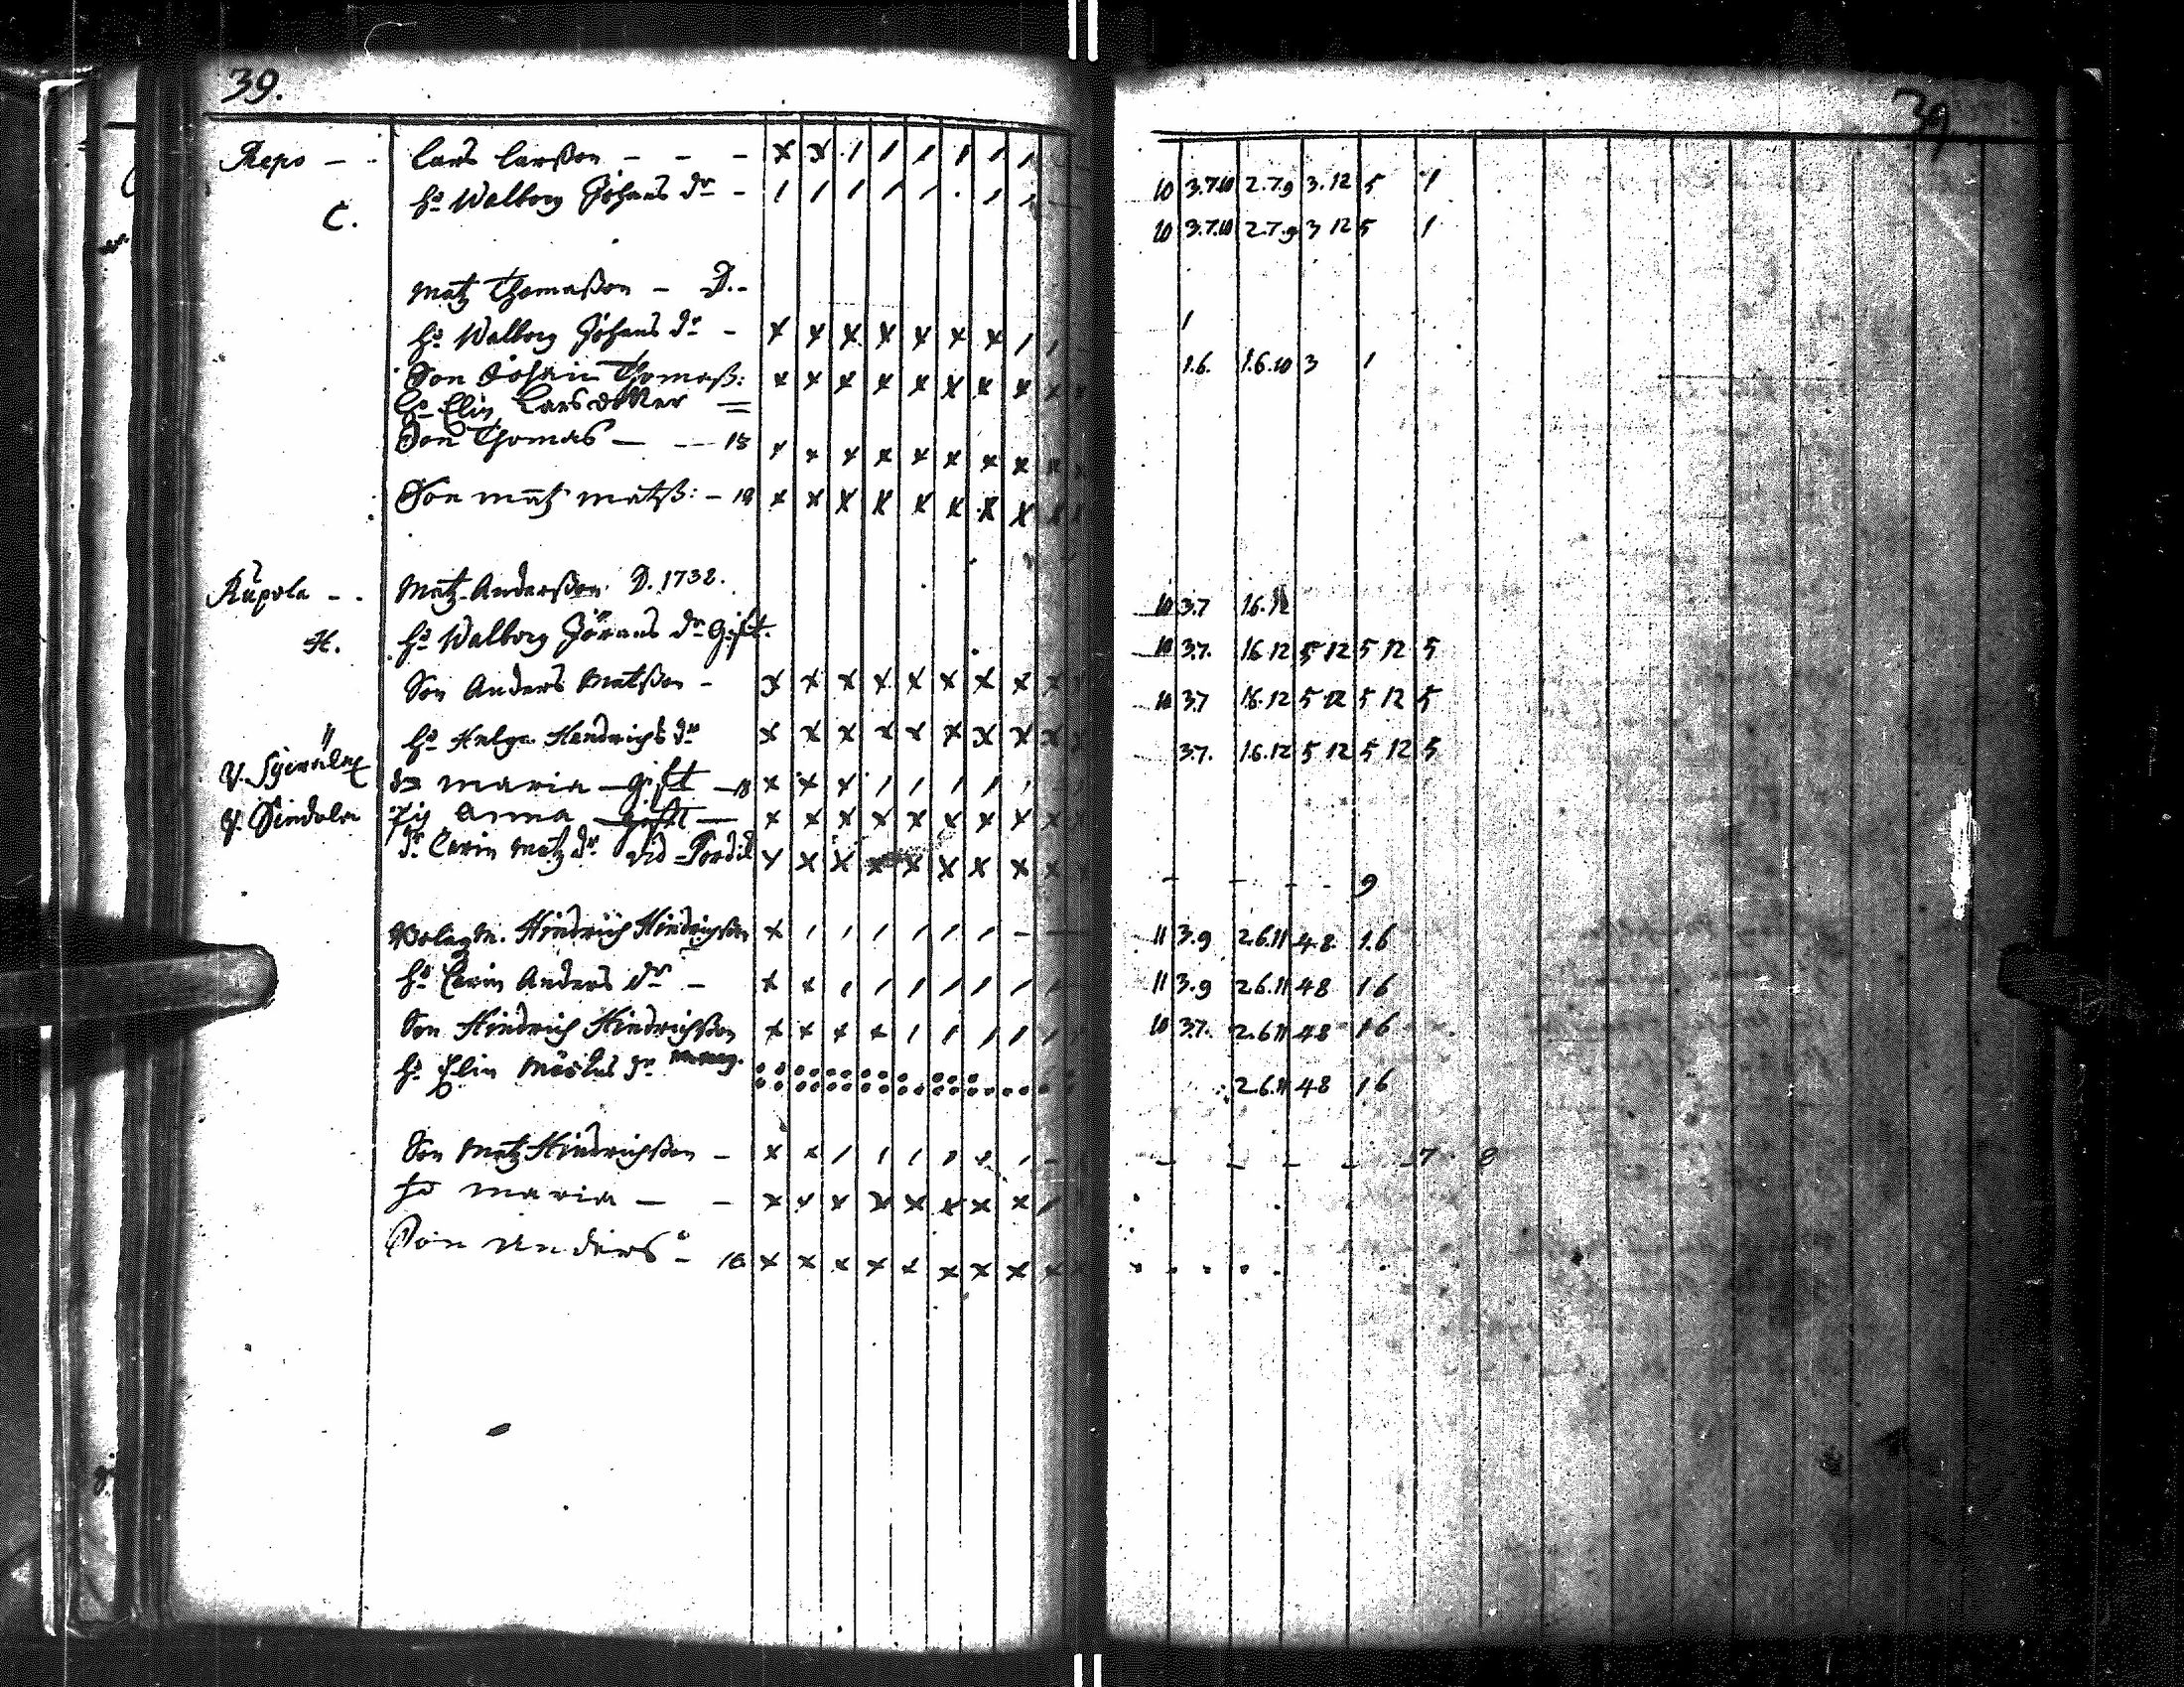 39.
39
Repo - - Lars Larßon - - - x x / / / / / /
C. h:o Walborg Johans dr - / / / / / . / /
10 3.7.10 2.7.9 3.12 5 1
10 3.7.10 2.7.9 3 12 5 1
Matz Thomaßon - D. -
h:o Walborg Johans dr - x x x x x x x / /
1
Son Johan Thomaß: x x x x x x x x x x
1.6. 1.6.10 3 1
h:o Elin Larsdotter =
Son Thomas - - - 13 x x x x x x x x x x
Son Matz Matzß: - 19 x x x x x x x x x x
Kupola - . Matz Anderßon D. 1732.
10 3.7 16.12
H. h:o Walborg Jörans dr Gift.
10 3.7. 16 12 5 12 5 12 5
Son Anders Matßon - x x x x x x x x x
10 3.7 16.12 5 12 5 12 5
h:o Helga Hendrichs dr x x x x x x x x x
3.7. 1.6.12 5 12 5 12 5
dr Maria - gift - 18 x x x / / / / /
Anna - gift - x x x x x x x x x
dr Carin Matz dr vid x x x x x x x x x
- - - - 9
Bolagm. Hindrich Hindrichßon x / / / / / / - -
11 3.9 2.6.11 4.8 1.6
h:o Carin Anders dr - x x / / / / / / /
11 3.9 26.11 48 1 6
Son Hindrich Hindrichßon x x x x / / / / /
10 3.7. 2.6 11 48 1 6
h:o Elin Markus dr
2.6.11 48 1 6
Son Matz Hindrichßon - x x / / / / x / -
- - - - - 7 8
h:o Maria - - x x x x x x x x /
Son Anders - 16 x x x x x x x x x